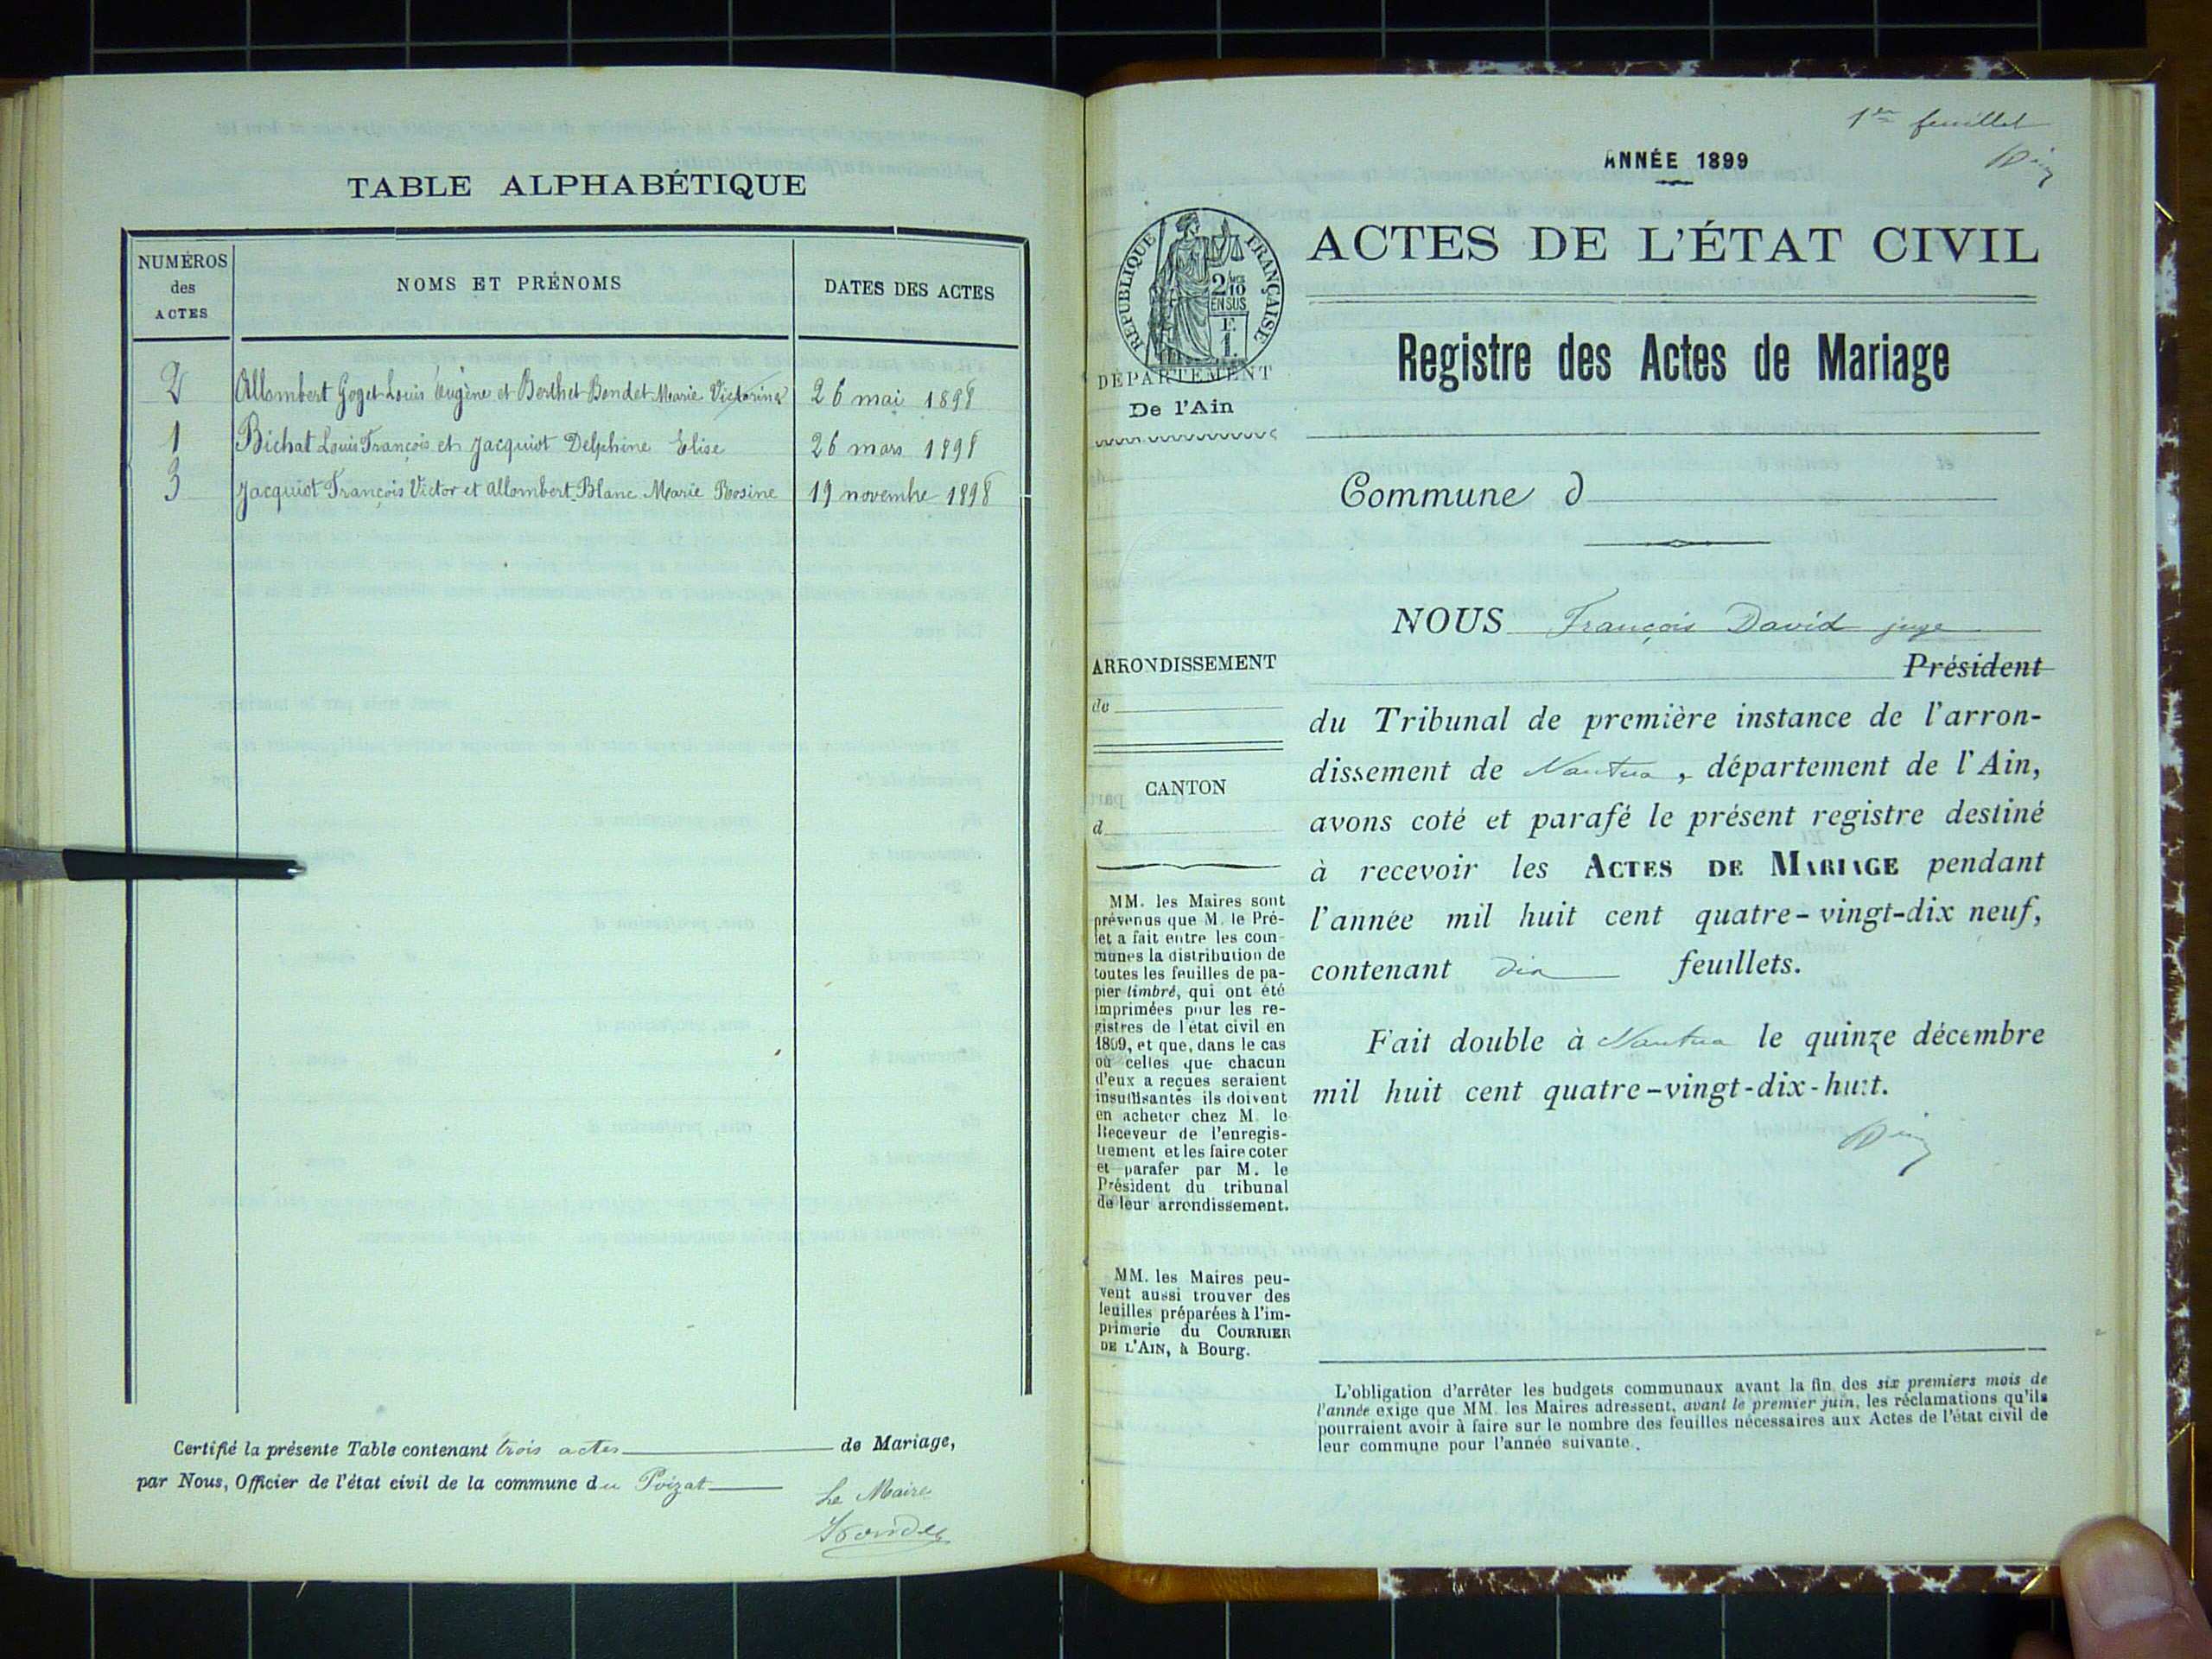 TABLE ALPHABÉTIQUE
NUMÉROS
des
ACTES
NOMS ET PRÉNOMS
DATES DES ACTES
2 Allombert Goget Louis Eugène et Berthet-Bondet Marie Victorine 26 mai 1898
1 Bichat Louis François et Jacquiot Delphine Elise 26 mars 1898
3 Jacquiot François Victor et Allombert-Blanc Marie Rosine 19 novembre 1898
Certifié la présente Table contenant trois actes de Mariage,
par Nous, Officier de l'état civil de la commune du Poizat
Le Maire
1er feuillet
ANNÉE 1899
RÉPUBLIQUE FRANÇAISE
2/10
EN SUS
F.
1.
DÉPARTEMENT
De l'Ain
ACTES DE L'ÉTAT CIVIL
Registre des Actes de Mariage
Commune d
ARRONDISSEMENT
de
CANTON
d
MM. les Maires sont
prévenus que M. le Pré-
fet a fait entre les com-
munes la distribution de
toutes les feuilles de pa-
pier timbré, qui ont été
imprimées pour les re-
gistres de l'état civil en
1899, et que, dans le cas
où celles que chacun
d'eux a reçues seraient
insuffisantes ils doivent
en acheter chez M. le
Receveur de l'enregis-
trement et les faire coter
et parafer par M. le
Président du tribunal
de leur arrondissement.
MM. les Maires peu-
vent aussi trouver des
feuilles préparées à l'im-
primerie du COURRIER
DE L'AIN, à Bourg.
NOUS François David juge
Président
du Tribunal de première instance de l'arron-
dissement de Nantua, département de l'Ain,
avons coté et parafé le présent registre destiné
à recevoir les ACTES DE MARIAGE pendant
l'année mil huit cent quatre-vingt-dix neuf,
contenant dix feuillets.
Fait double à Nantua le quinze décembre
mil huit cent quatre-vingt-dix-huit.
L'obligation d'arrêter les budgets communaux avant la fin des six premiers mois de
l'année exige que MM. les Maires adressent, avant le premier juin, les réclamations qu'ils
pourraient avoir à faire sur le nombre des feuilles nécessaires aux Actes de l'état civil de
leur commune pour l'année suivante.